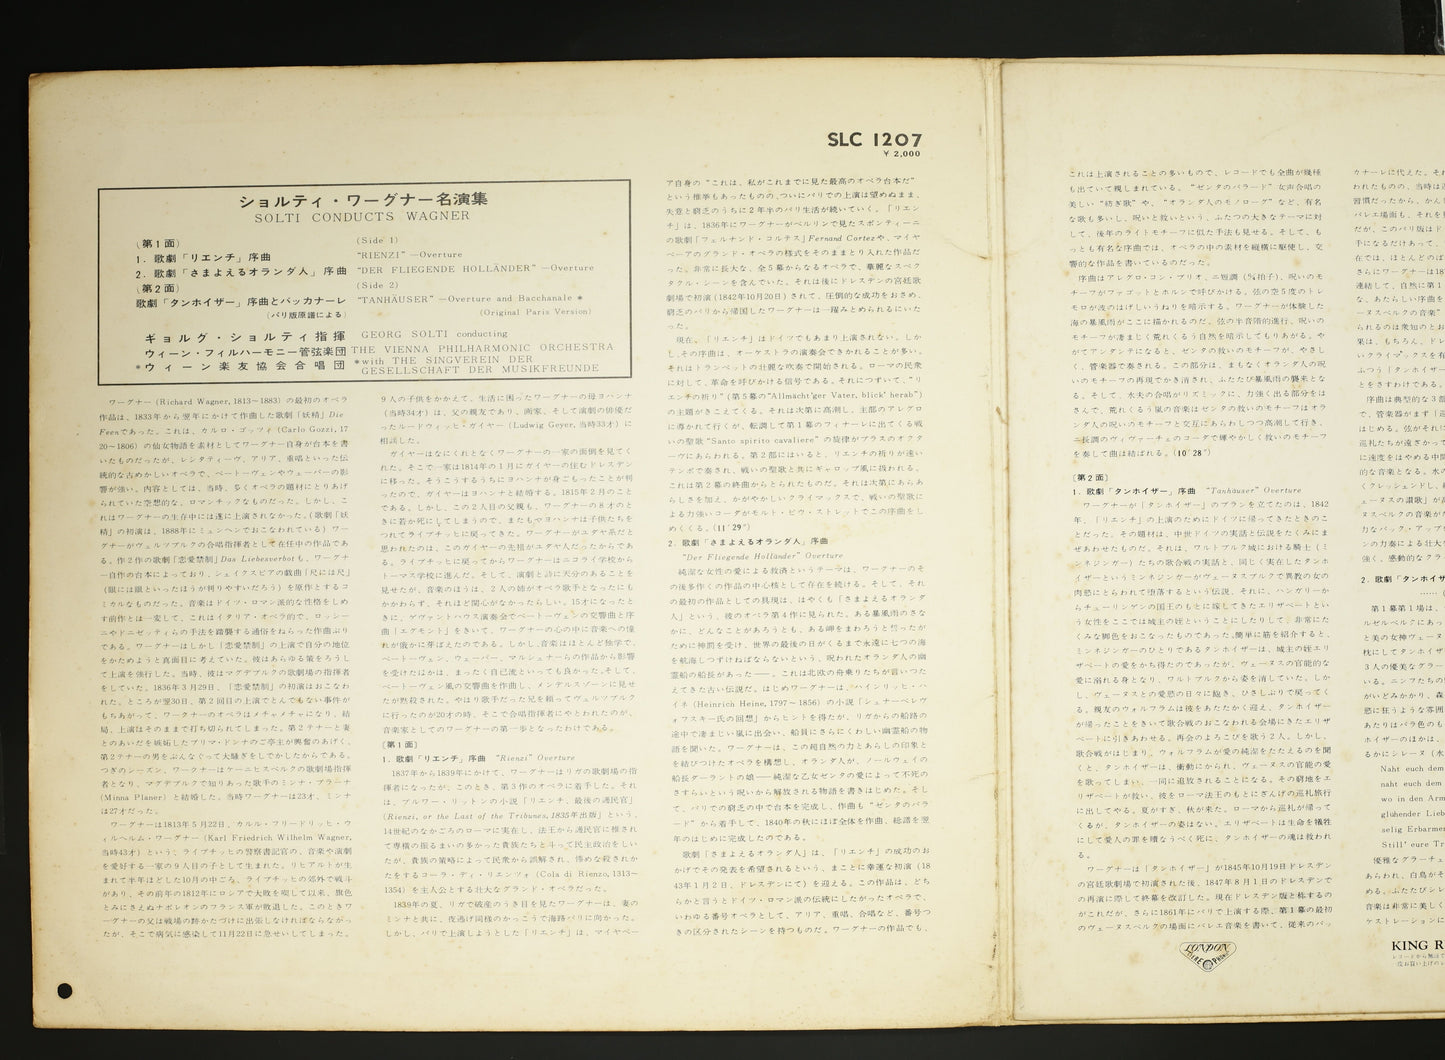 SLC 1207
¥ 2,000
ショルティ・ワーグナー名演集
SOLTI CONDUCTS WAGNER
(第1面) (Side 1)
1. 歌劇「リエンチ」序曲 "RIENZI" —Overture
2. 歌劇「さまよえるオランダ人」序曲 "DER FLIEGENDE HOLLÄNDER" —Overture
(第2面) (Side 2)
歌劇「タンホイザー」序曲とバッカナーレ "TANHÄUSER" —Overture and Bacchanale *
(パリ版原譜による) (Original Paris Version)
ギョルグ・ショルティ指揮 GEORG SOLTI conducting
ウィーン・フィルハーモニー管弦楽団 THE VIENNA PHILHARMONIC ORCHESTRA
*ウィーン楽友協会合唱団 *with THE SINGVEREIN DER
GESELLSCHAFT DER MUSIKFREUNDE
ワーグナー (Richard Wagner, 1813〜1883) の最初のオペラ
作品は、1833年から翌年にかけて作曲した歌劇「妖精」Die
Feenであった。これは、カルロ・ゴッツィ (Carlo Gozzi, 17
20〜1806) の仙女物語を素材としてワーグナー自身が台本を書
いたものだったが、レシタティーヴ、アリア、重唱といった伝
統的な古めかしいオペラで、ベートーヴェンやウェーバーの影
響が強い。内容としては、当時、多くオペラの題材にとりあげ
られていた空想的な、ロマンチックなものだった。しかし、こ
れはワーグナーの生存中には遂に上演されなかった。(歌劇「妖
精」の初演は、1888年にミュンヘンでおこなわれている) ワー
グナーがヴュルツブルクの合唱指揮者として在任中の作品であ
る。作2作の歌劇「恋愛禁制」Das Liebesverbotも、ワーグナ
ー自作の台本によっており、シェイクスピアの戯曲「尺には尺」
(眼には眼といったほうが判りやすいだろう) を原作とするコ
ミカルなものだった。音楽はドイツ・ロマン派的な性格をしめ
す前作とは一変して、これはイタリア・オペラ的で、ロッシー
ニやドニゼッティらの手法を踏襲する通俗をねらった作曲ぶり
である。ワーグナーはしかし「恋愛禁制」の上演で自分の地位
をかためようと真面目に考えていた。彼はあらゆる策をろうし
て上演を強行した。当時、彼はマグデブルクの歌劇場の指揮者
をしていた。1836年3月29日、「恋愛禁制」の初演はおこなわ
れた。ところが翌30日、第2回目の上演でとんでもない事件が
もちあがって、ワーグナーのオペラはメチャメチャになり、結
局、上演はそのままで打ち切られてしまった。第2テナーと妻
とのあいだを嫉妬したプリマ・ドンナのご亭主が興奮のあげく、
第2テナーの男をぶんなぐって大騒ぎをしでかしたからである。
つぎのシーズン、ワーグナーはケーニヒスベルクの歌劇場指揮
者となり、マグデブルクで知りあった歌手のミンナ・プラーナ
(Minna Planer) と結婚した。当時ワーグナーは23才、ミンナ
は27才だった。
ワーグナーは1813年5月22日、カルル・フリードリッヒ・ウ
ィルヘルム・ワーグナー (Karl Friedrich Wilhelm Wagner,
当時43才) という、ライプチッヒの警察書記官の、音楽や演劇
を愛好する一家の9人目の子として生まれた。リヒアルトが生
まれて半年ほどした10月の中ごろ、ライプチッヒの郊外で戦斗
があり、その前年の1812年にロシアで大敗を喫して以来、旗色
とみにさえぬナポレオンのフランス軍が敗退した。このときワ
ーグナーの父は戦場の跡かたづけに出張しなければならなかっ
たが、そこで病気に感染して11月22日に急せいしてしまった。
9人の子供をかかえて、生活に困ったワーグナーの母ヨハンナ
(当時34才) は、父の親友であり、画家、そして演劇の俳優だ
ったルードウィッヒ・ガイヤー (Ludwig Geyer, 当時33才) に
相談した。
ガイヤーはなにくれとなくワーグナーの一家の面倒を見てく
れた。そこで一家は1814年の1月にガイヤーの住むドレスデン
に移った。そうこうするうちにヨハンナが身ごもったことが判
ったので、ガイヤーはヨハンナと結婚する。1815年2月のこと
である。しかし、この2人目の父親も、ワーグナーの8才のと
きに若か死にしてしまうので、またもやヨハンナは子供たちを
つれてライプチッヒに戻ってきた。ワーグナーがユダヤ系だと
思われたのは、このガイヤーの先祖がユダヤ人だったからであ
る。ライプチッヒに戻ってからワーグナーはニコライ学校から
トーマス学校に進んだ。そして、演劇と詩に天分のあることを
見せたが、音楽のほうは、2人の姉がオペラ歌手となったにも
かかわらず、それほど関心がなかったらしい。15才になったと
きに、ゲヴァントハウス演奏会でベートーヴェンの交響曲と序
曲「エグモント」をきいて、ワーグナーの心の中に音楽への憧
れが俄かに芽ばえたのである。しかし、音楽はほとんど独学で、
ベートーヴェン、ウェーバー、マルシュナーらの作品から影響
を受けたほかは、まったく自己流といっても良かった。そして、
ベートーヴェン風の交響曲を作曲し、メンデルスゾーンに見せ
たが黙殺された。やはり歌手だった兄を頼ってヴュルツブルク
に行ったのが20才の時、そこで合唱指揮者にやとわれたのが、
音楽家としてのワーグナーの第一歩となったわけである。
[第1面]
1. 歌劇「リエンチ」序曲 "Rienzi" Overture
1837年から1839年にかけて、ワーグナーはリガの歌劇場の指
揮者になったが、このとき、第3作のオペラに着手した。それ
は、ブルワー・リットンの小説「リエンチ、最後の護民官」
(Rienzi, or the Last of the Tribunes, 1835年出版) という、
14世紀のなかごろのローマに実在し、法王から護民官に推され
て専横の振るまいの多かった貴族たちと斗って民主政治をしい
たが、貴族の策略によって民衆から誤解され、惨めな殺されか
たをするコーラ・ディ・リエンツォ (Cola di Rienzo, 1313〜
1354) を主人公とする壮大なグランド・オペラだった。
1839年の夏、リガで破産のうき目を見たワーグナーは、妻の
ミンナと共に、夜逃げ同様のかっこうで海路パリに向かった。
しかし、パリで上演しようとした「リエンチ」は、マイヤベー
ア自身の "これは、私がこれまでに見た最高のオペラ台本だ"
という推挙もあったものの、ついにパリでの上演は望めぬまま、
失意と窮乏のうちに2年半のパリ生活が続いていく。「リエン
チ」は、1836年にワーグナーがベルリンで見たスポンティーニ
の歌劇「フェルナンド・コルテス」Fernand Cortezや、マイヤ
ベーアのグランド・オペラの様式をそのままとり入れた作品だ
った。非常に長大な、全5幕からなるオペラで、華麗なスペク
タクル・シーンを含んでいた。それは後にドレスデンの宮廷歌
劇場で初演 (1842年10月20日) されて、圧倒的な成功をおさめ、
窮乏のパリから帰国したワーグナーは一躍みとめられるにいた
った。
現在、「リエンチ」はドイツでもあまり上演されない。しか
し、その序曲は、オーケストラの演奏会できかれることが多い。
それはトランペットの壮麗な吹奏で開始される。ローマの民衆
に対して、革命を呼びかける信号である。それにつずいて、"リ
エンチの祈り" (第5幕の"Allmächt'ger Vater, blick' herab")
の主題がきこえてくる。それは次第に高潮し、主部のアレグロ
に導かれて行くが、転調して第1幕のフィナーレに出てくる戦
いの聖歌 "Santo spirito cavaliere" の旋律がブラスのオクタ
ーヴにあらわれる。第2部にはいると、リエンチの祈りが速い
テンポで奏され、戦いの聖歌と共にギャロップ風に扱われる。
これは第2幕の終曲からとられたものだ。それは次第にあらあ
らしさを加え、かがやかしいクライマックスで、戦いの聖歌に
よる力強いコーダがモルト・ピウ・ストレットでこの序曲をし
めくくる。(11′29″)
2. 歌劇「さまよえるオランダ人」序曲
"Der Fliegende Holländer" Overture
純潔な女性の愛による救済というテーマは、ワーグナーのそ
の後多作くの作品の中心核として存在を続ける。そして、それ
の最初の作品としての具現は、はやくも「さまよえるオランダ
人」という、彼のオペラ第4作に見られた。ある暴風雨のさな
かに、どんなことがあろうとも、ある岬をまわろうと誓ったが
ために神罰を受け、世界の最後の日がくるまで永遠に七つの海
を航海しつずけねばならないという、呪われたオランダ人の幽
霊船の船長があった——。これは北欧の舟乗りたちが言いつた
えてきた古い伝説だ。はじめワーグナーは、ハインリッヒ・ハ
イネ (Heinrich Heine, 1797〜1856) の小説「シュナーベレヴ
ォプスキー氏の回想」からヒントを得たが、リガからの船路の
途中で凄まじい嵐に出会い、船員にさらにくわしい幽霊船の物
語を聞いた。ワーグナーは、この超自然の力とあらしの印象と
を結びつけたオペラを構想し、オランダ人が、ノールウェイの
船長ダーラントの娘——純潔な乙女ゼンタの愛によって不死の
さすらいという呪いから解放される物語を書きはじめた。そし
て、パリでの窮乏の中で台本を完成し、作曲も "ゼンタのバラ
ード" から着手して、1840年の秋にほぼ全体を作曲、総譜を翌
年のはじめに完成したのである。
歌劇「さまよえるオランダ人」は、「リエンチ」の成功のお
かげでその発表を希望されるという、まことに幸運な初演 (18
43年1月2日、ドレスデンにて) を迎える。この作品は、どち
らかと言うとドイツ・ロマン派の伝統にしたがったオペラで、
いわゆる番号オペラとして、アリア、重唱、合唱など、番号つ
きの区分されたシーンを持つものだ。ワーグナーの作品でも、
これは上演されることの多いもので、レコードでも全曲が幾種
も出ていて親しまれている。"ゼンタのバラード" 女声合唱の
美しい "紡ぎ歌" や、"オランダ人のモノローグ" など、有名
な歌も多いし、呪いと救いという、ふたつの大きなテーマに対
して、後年のライトモチーフに似た手法も見せる。そして、も
っとも有名な序曲では、オペラの中の素材を縦横に駆使し、交
響的な作品を書いているのだった。
序曲はアレグロ・コン・ブリオ、ニ短調 (6/4拍子)、呪いのモ
チーフがファゴットとホルンで呼びかける。弦の空5度のトレ
モロが波のはげしいうねりを暗示する。ワーグナーが体験した
海の暴風雨がここに描かれるのだ。弦の半音階的進行、呪いの
モチーフが凄まじく荒れくるう自然を暗示してもりあがる。や
がてアンダンテになると、ゼンタの救いのモチーフが、やさし
く、管楽器で奏される。この部分は、まもなくオランダ人の呪
いのモチーフの再現でかき消され、ふたたび暴風雨の襲来とな
る。そして、水夫の合唱がリズミックに、力強く出る部分をは
さんで、荒れくるう嵐の音楽はゼンタの救いのモチーフはオラ
ンダ人の呪いのモチーフと交互にあらわしつつ高潮して行き、
ニ長調のヴィヴァーチェのコーダで輝やかしく救いのモチーフ
を奏して曲は結ばれる。(10′28″)
[第2面]
1. 歌劇「タンホイザー」序曲 "Tanhäuser" Overture
ワーグナーが「タンホイザー」のプランを立てたのは、1842
年、「リエンチ」の上演のためにドイツに帰ってきたときのこ
とだった。その題材は、中世ドイツの実話と伝説をたくみにま
ぜあわせたものだ。それは、ワルトブルク城における騎士 (ミ
ンネジンガー) たちの歌合戦の実話と、同じく実在したタンホ
イザーというミンネジンガーがヴェーヌスブルクで異教の女の
肉慾にとらわれて堕落するという伝説、それに、ハンガリーか
らチューリンゲンの国王のもとに嫁してきたエリザベートとい
う女性をここでは城主の姪ということにしたりして、非常にた
くみな脚色をおこなったものであった。簡単に筋を紹介すると、
ミンネジンガーのひとりであるタンホイザーは、城主の姪エリ
ザベートの愛をかち得たのであったが、ヴェーヌスの官能的な
愛に溺れる身となり、ワルトブルクから姿を消していた。しか
し、ヴェーヌスとの愛慾の日々に飽き、ひさしぶりで戻ってく
る。親友のウォルフラムは彼をあたたかく迎え、タンホイザー
が帰ったことをきいて歌合戦のおこなわれる会場にきたエリザ
ベートに引きあわせる。再会のよろこびを歌う2人。しかし、
歌合戦がはじまり、ウォルフラムが愛の純潔をたたえるのを聞
くと、タンホイザーは、衝動にかられ、ヴェーヌスの官能の愛
を歌ってしまい、一同に追放されることになる。その窮地をエ
リザベートが救い、彼をローマ法王のもとにざんげの巡礼旅行
に出してやる。夏がすぎ、秋が来た。ローマから巡礼が帰って
くるが、タンホイザーの姿はない。エリザベートは生命を犠牲
にして愛人の罪を贖なうべく死に、タンホイザーの魂は救われ
る。
ワーグナーは「タンホイザー」が1845年10月19日ドレスデン
の宮廷歌劇場で初演された後、1847年8月1日のドレスデンで
の再演に際して終幕を改訂した。現在ドレスデン版と称するの
がこれだが、さらに1861年にパリで上演する際、第1幕の最初
のヴェーヌスベルクの場面にバレエ音楽を書いて、従来のバッ
LONDON
STEREO PHONIC
カナーレに代えた。それ
われたものの、当時は
習慣だったから、かん
バレエ場面も、それを
だが、このパリ版はド
手になるだけあって、
在では、ほとんどのば
さらにワーグナーは18
連結して、自然に第1
な、あたらしい序曲を
ーヌスベルクの音楽"
られるのは衆知のとお
果は、もちろん、ドレ
いクライマックスを有
ふつう「タンホイザー
とをさすわけである。
序曲は典型的な3部
で、管楽器がまず「巡
はじめる。弦がそれに
巡礼たちが遠ざかって
に速度をはやめる中間
的な音楽となる。
くクレッシェンドし、
ェーヌスの讃歌」が
ヌスベルクの音楽が
力なバック・アップ
ンの力奏による壮大
強く、感動的なクラ
2. 歌劇「タンホイザ
……
第1幕第1場は、
ルゼルベルクにあっ
と美の女神ヴェーヌ
枕にしてタンホイザ
3人の優美なグラー
いる。ニンフたちの
がいどみかかり、森
慾に狂うような雰囲
あたりはバラ色のも
ホイザーのほかは、
るかにシレーヌ (水
Naht euch dem
naht euch dem
wo in den Arm
glühender Lieb
selig Erbarmen
Still' eure Tr
優雅なグラーチェ
あらわれ、白鳥がそ
める。ふたたびシレ
音楽は非常に美しく
ケストレーションに
KING R